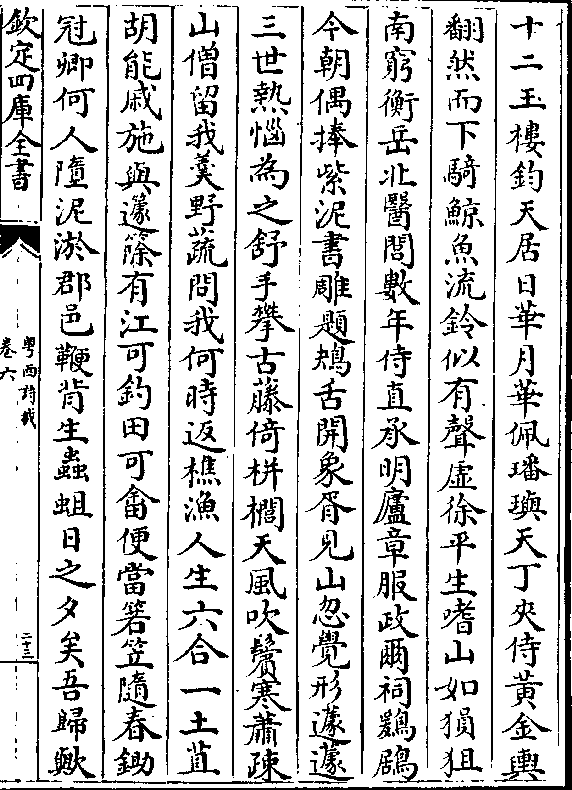 十二玉樓鈞天居日華月華佩璠璵天丁夾侍黃金輿
翻然而下騎鯨魚流鈴似有聲虛徐平生嗜山如猨狙
南窮衡岳北醫閭數年侍直承明廬章服政爾祠鷄鶋
今朝偶捧紫泥書雕題鴂舌開象胥見山忽覺形蘧蘧
三世熱惱為之舒手攀古藤倚栟櫚天風吹鬢寒蕭疎
山僧留我羮野蔬問我何時返樵漁人生六合一土苴
胡能戚施與籧篨有江可釣田可畬便當箬笠隨春鋤
冠卿何人墮泥淤郡邑鞭背生蟲蛆日之夕矣吾歸歟
欽定四庫全書
粤西詩載
卷六
二十三